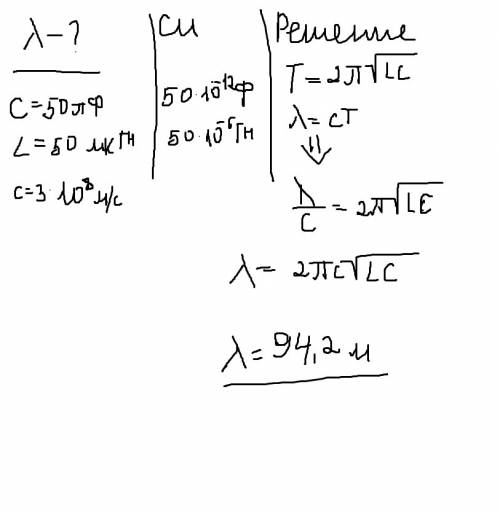 λ-?
C=50пФ
L=50 мкГн
c=3·10⁸м/с
СИ
50·10⁻¹²Ф
50·10⁻⁶Гн
Решение
T=2π√LC
λ=cT
⇓
λ/c=2π√LC
λ= 2πc√LC
λ=94,2 м